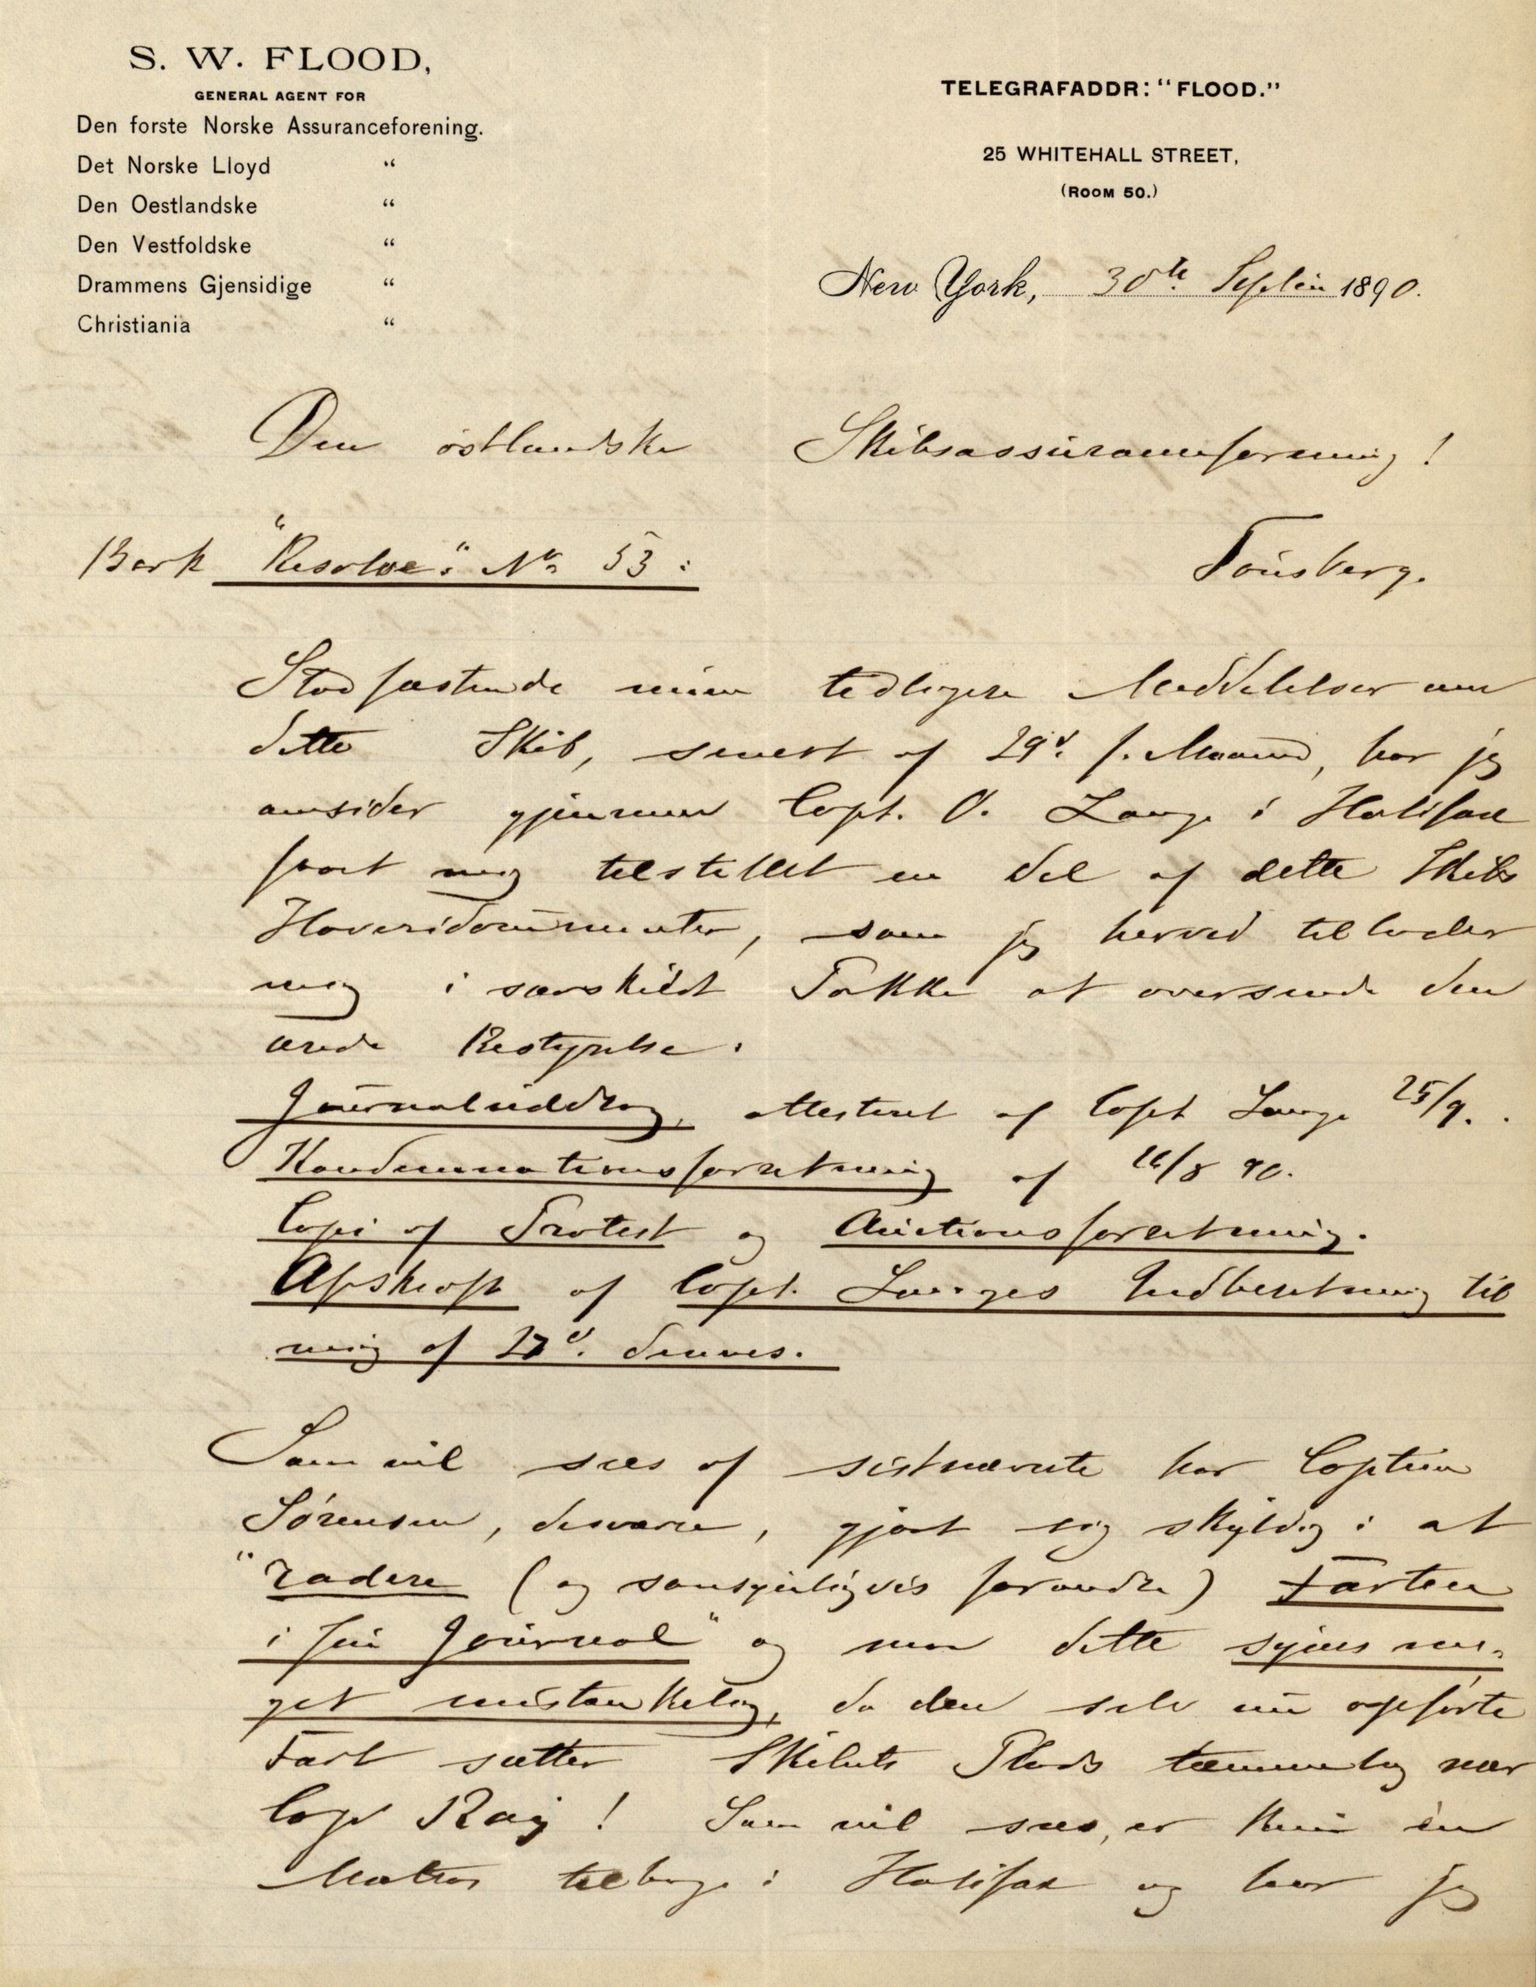 S. W. FLOOD,
GENERAL AGENT FOR
Den forste Norske Assuranceforening.
Det Norske Lloyd "
Den Oestlandske "
Den Vestfoldske "
Drammens Gjensidige "
Christiania "
TELEGRAFADDR: "FLOOD."
25 WHITEHALL STREET,
(ROOM 50.)
New York, 30th Septbr 1890.
Den östlandske Skibsassuranceforening!
Bark "Resolve" No 53:
Tönsberg.
Stadfæstende mine tidligere Meddelelser om
dette Skib, senest af 29d. f. Maaned, har jeg
omsider gjennem Capt. O. Lange i Halifax
faaet mig tilstillet en Del af dette Skibs
Havaridocumenter, som jeg herved tillader
mig i særskildt Pakke at oversende den
ærede Bestyrelse:
Journaluddrag, attesteret af Capt Lange 25/9.
Kondemnationsforretning af /8 90.
Copi af Protest og Auctionsforretning.
Afskrift af Capt. Langes Indberetning til
mig af 27d. dennes.
Som vil sees af sistnævnte har Captein
Sörensen, desværre, gjort sig skyldig i at
"radere (og sansynligvis forandre) Farten
i sin Journal" og man dette synes me-
get mistænkelig, da den selv nu opförte
Fart sætter Skibets Plads temmelig nær
Cap Ray! Som vil sees, er kun èn
Matros tilbage i Halifax og har jeg